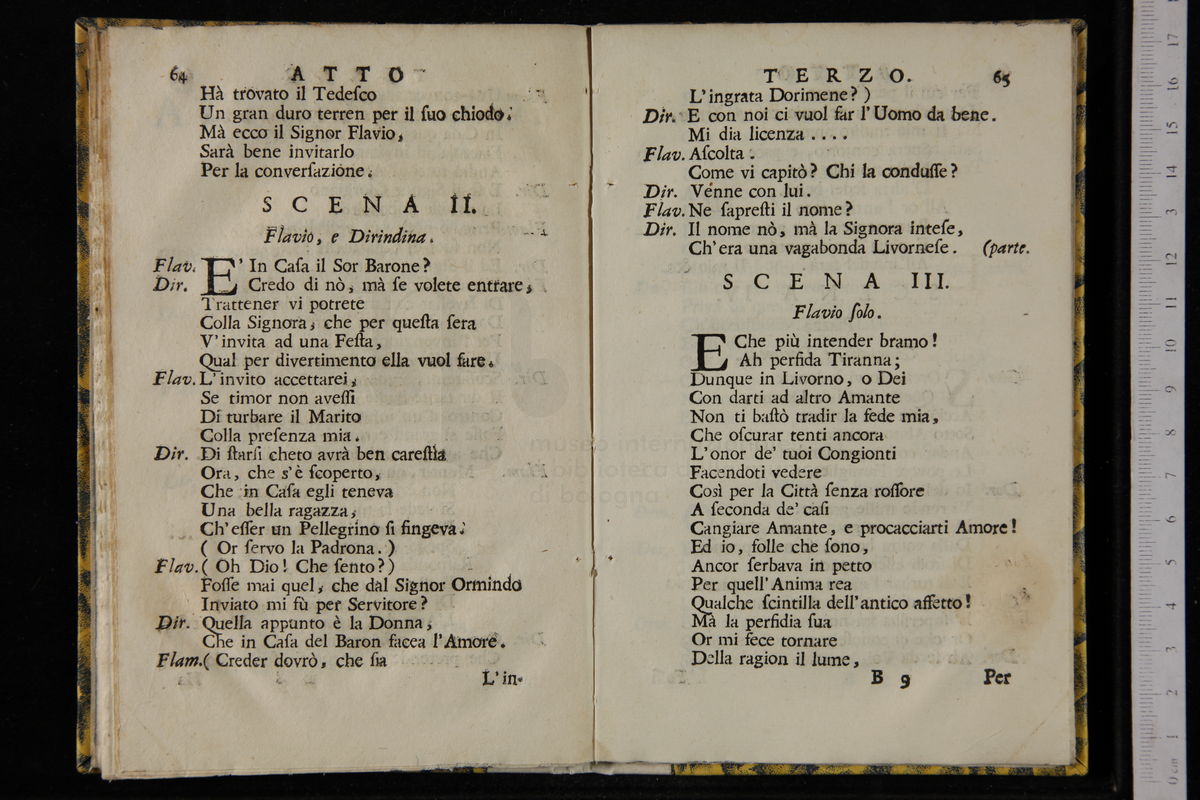 64 ATTO
Hà trovato il Tedeſco
Un gran duro terren per il ſuo chiodo.
Mà ecco il Signor Flavio,
Sarà bene invitarlo
Per la converſazione.
SCENA II.
Flavio, e Dirindina.
Flav. E' In Caſa il Sor Barone?
Dir. Credo di nò, mà ſe volete entrare,
Trattener vi potrete
Colla Signora, che per queſta ſera
V'invita ad una Feſta,
Qual per divertimento ella vuol fare.
Flav. L'invito accettarei,
Se timor non aveſſi
Di turbare il Marito
Colla preſenza mia.
Dir. Di ſtarſi cheto avrà ben careſtia
Ora, che s'è ſcoperto,
Che in Caſa egli teneva
Una bella ragazza,
Ch'eſſer un Pellegrino ſi fingeva.
( Or ſervo la Padrona. )
Flav. ( Oh Dio! Che ſento? )
Foſſe mai quel, che dal Signor Ormindo
Inviato mi fù per Servitore?
Dir. Quella appunto è la Donna,
Che in Caſa del Baron facea l'Amore.
Flam. ( Creder dovrò, che ſia
L'in-
TERZO. 65
L'ingrata Dorimene? )
Dir. E con noi ci vuol far l'Uomo da bene.
Mi dia licenza ....
Flav. Aſcolta.
Come vi capitò? Chi la conduſſe?
Dir. Vénne con lui.
Flav. Ne ſapreſti il nome?
Dir. Il nome nò, mà la Signora inteſe,
Ch'era una vagabonda Livorneſe. (parte.
SCENA III.
Flavio ſolo.
E Che più intender bramo!
Ah perfida Tiranna;
Dunque in Livorno, o Dei
Con darti ad altro Amante
Non ti baſtò tradir la fede mia,
Che oſcurar tenti ancora
L'onor de' tuoi Congionti
Facendoti vedere
Così per la Città ſenza roſſore
A ſeconda de' caſi
Cangiare Amante, e procacciarti Amore!
Ed io, folle che ſono,
Ancor ſerbava in petto
Per quell'Anima rea
Qualche ſcintilla dell'antico affetto!
Mà la perfidia ſua
Or mi fece tornare
Della ragion il lume,
B 9 Per